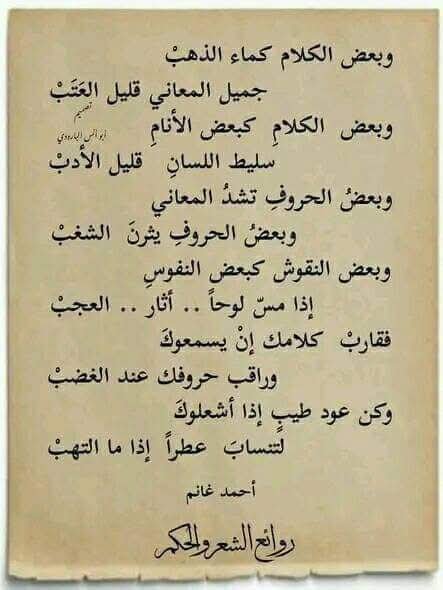 وبعض الكلام كماء الذهبْ
جميل المعاني قليل العَتَبْ
تصميم
ابو انس البارودي
وبعض الكلامِ كبعض الأنامِ
سليط اللسانِ قليل الأدبْ
وبعضُ الحروفِ تشدُ المعاني
وبعضُ الحروفِ يثرنَ الشغبْ
وبعض النقوش كبعض النفوسِ
إذا مسّ لوحاً .. أثار .. العجبْ
فقاربْ كلامك إنْ يسمعوكَ
وراقب حروفك عند الغضبْ
وكن عود طيبٍ إذا أشعلوكَ
لتنسابَ عطراً إذا ما التهبْ
أحمد غانم
روائع الشعر والحكم